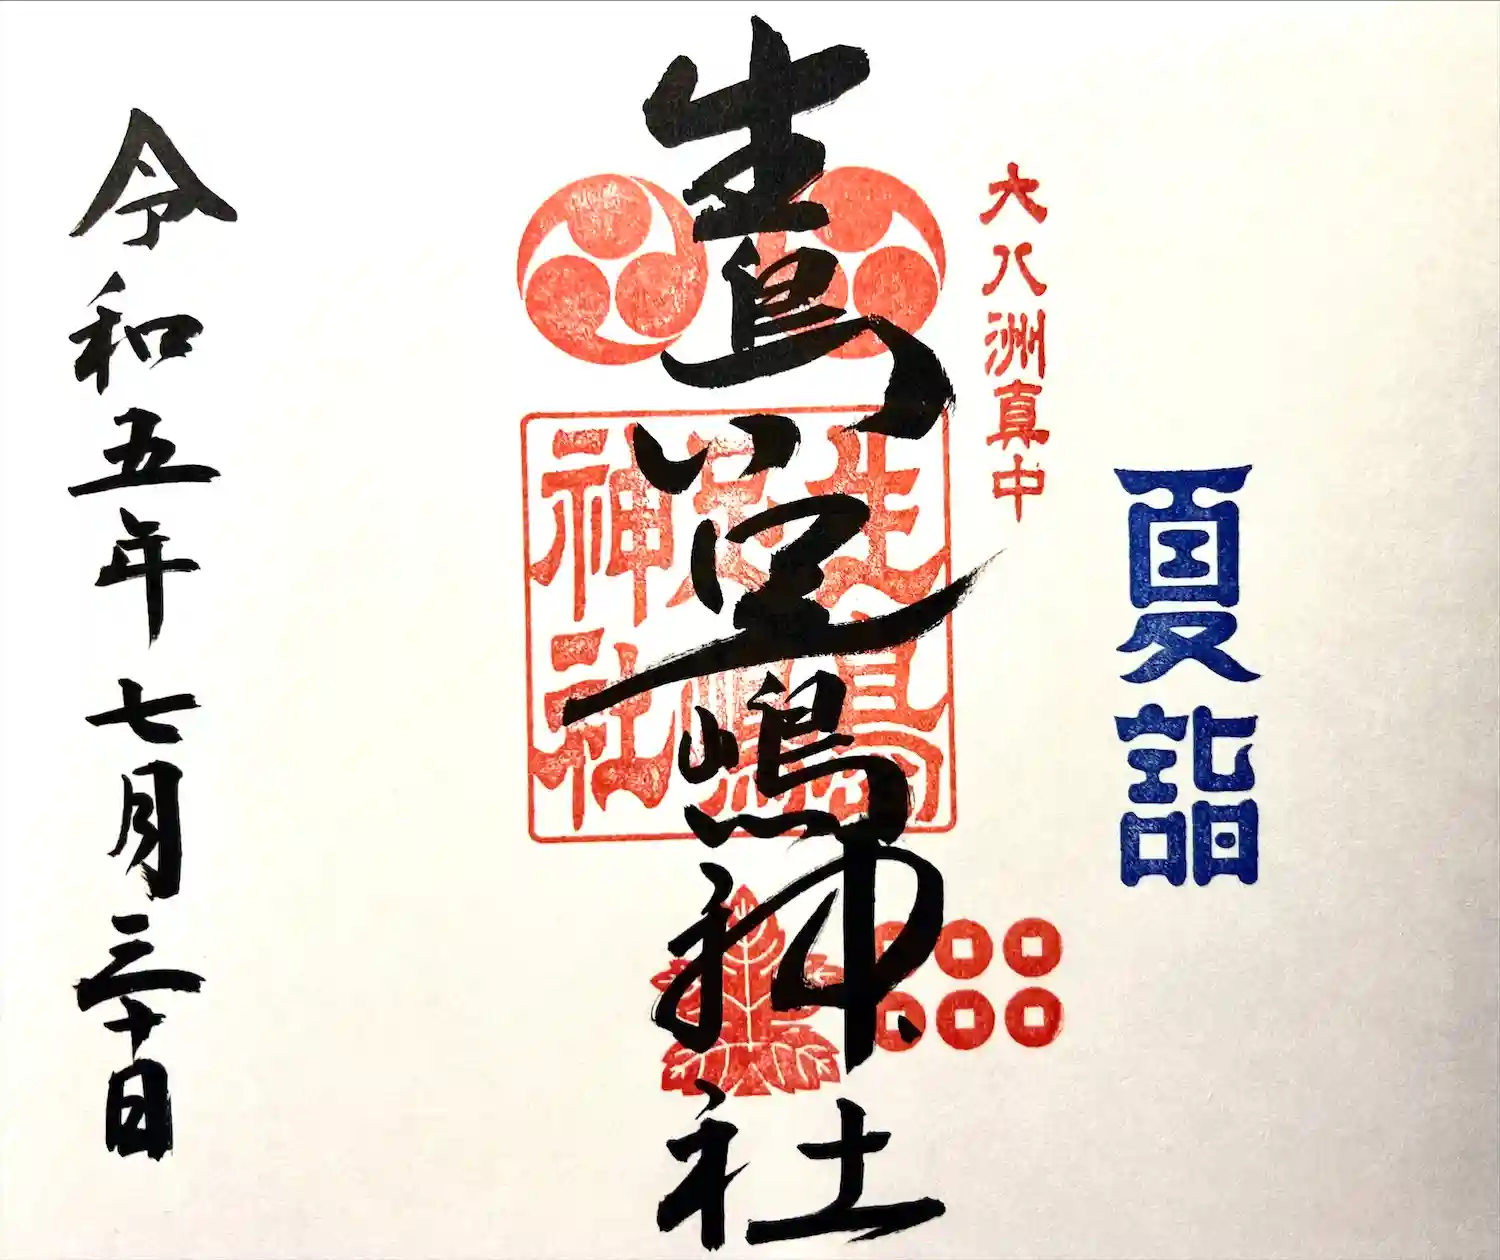 夏詣
大八洲真中
生島足嶋神社
生島
足嶋
神社
令和五年七月三十日